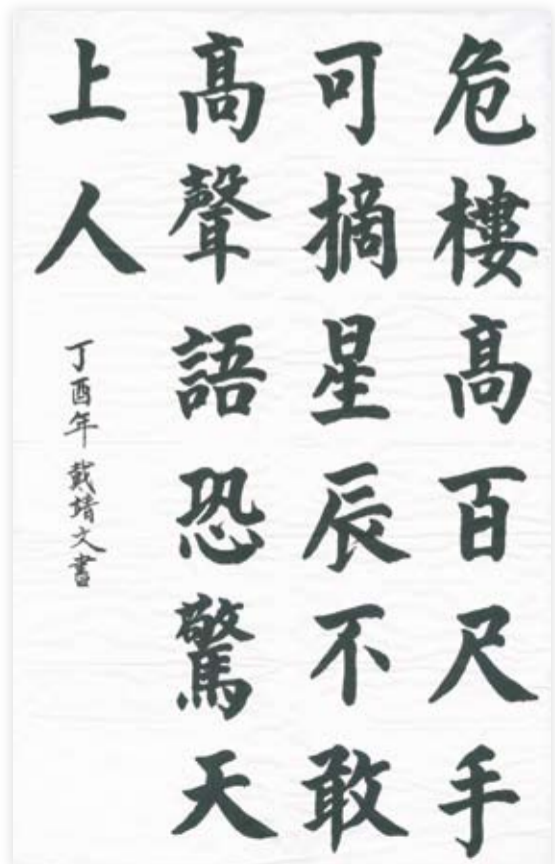 危樓高百尺手
可摘星辰不敢
高聲語恐驚天
上人
丁酉年 戴靖文書